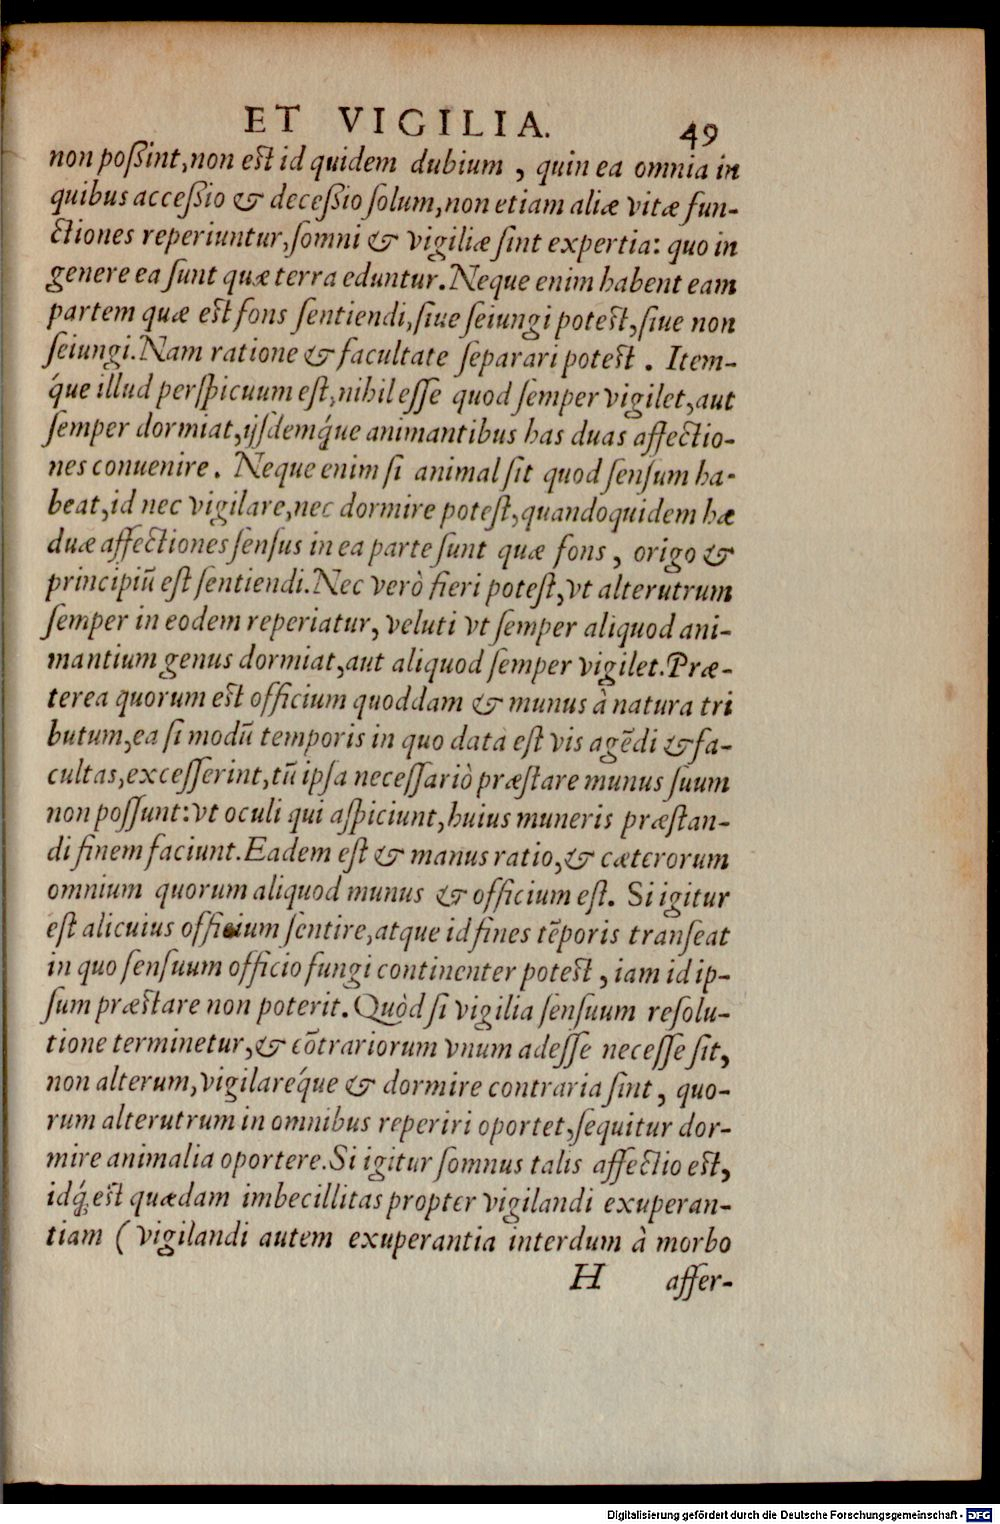 ET VIGILIA. 49
non poßint, non est id quidem dubium, quin ea omnia in
quibus acceßio & deceßio solum, non etiam aliæ vitæ fun-
ctiones reperiuntur, somni & vigiliæ sint expertia: quo in
genere ea sunt quæ terra eduntur. Neque enim habent eam
partem quæ est fons sentiendi, siue seiungi potest, siue non
seiungi. Nam ratione & facultate separari potest. Item-
q́ue illud perspicuum est, nihil esse quod semper vigilet, aut
semper dormiat, ijsdemq́ue animantibus has duas affectio-
nes conuenire. Neque enim si animal sit quod sensum ha-
beat, id nec vigilare, nec dormire potest, quandoquidem hæ
duæ affectiones sensus in ea parte sunt quæ fons, origo &
principiũ est sentiendi. Nec verò fieri potest, vt alterutrum
semper in eodem reperiatur, veluti vt semper aliquod ani-
mantium genus dormiat, aut aliquod semper vigilet. Præ-
terea quorum est officium quoddam & munus à natura tri
butum, ea si modũ temporis in quo data est vis agẽdi & fa-
cultas, excesserint, tũ ipsa necessariò præstare munus suum
non possunt: vt oculi qui aspiciunt, huius muneris præstan-
di finem faciunt. Eadem est & manus ratio, & cæterorum
omnium quorum aliquod munus & officium est. Si igitur
est alicuius officium sentire, atque id fines tẽporis transeat
in quo sensuum officio fungi continenter potest, iam id ip-
sum præstare non poterit. Quòd si vigilia sensuum resolu-
tione terminetur, & cõtrariorum vnum adesse necesse sit,
non alterum, vigilareq́ue & dormire contraria sint, quo-
rum alterutrum in omnibus reperiri oportet, sequitur dor-
mire animalia oportere. Si igitur somnus talis affectio est,
idq́; est quædam imbecillitas propter vigilandi exuperan-
tiam (vigilandi autem exuperantia interdum à morbo
H affer-
Digitalisierung gefördert durch die Deutsche Forschungsgemeinschaft - DFG